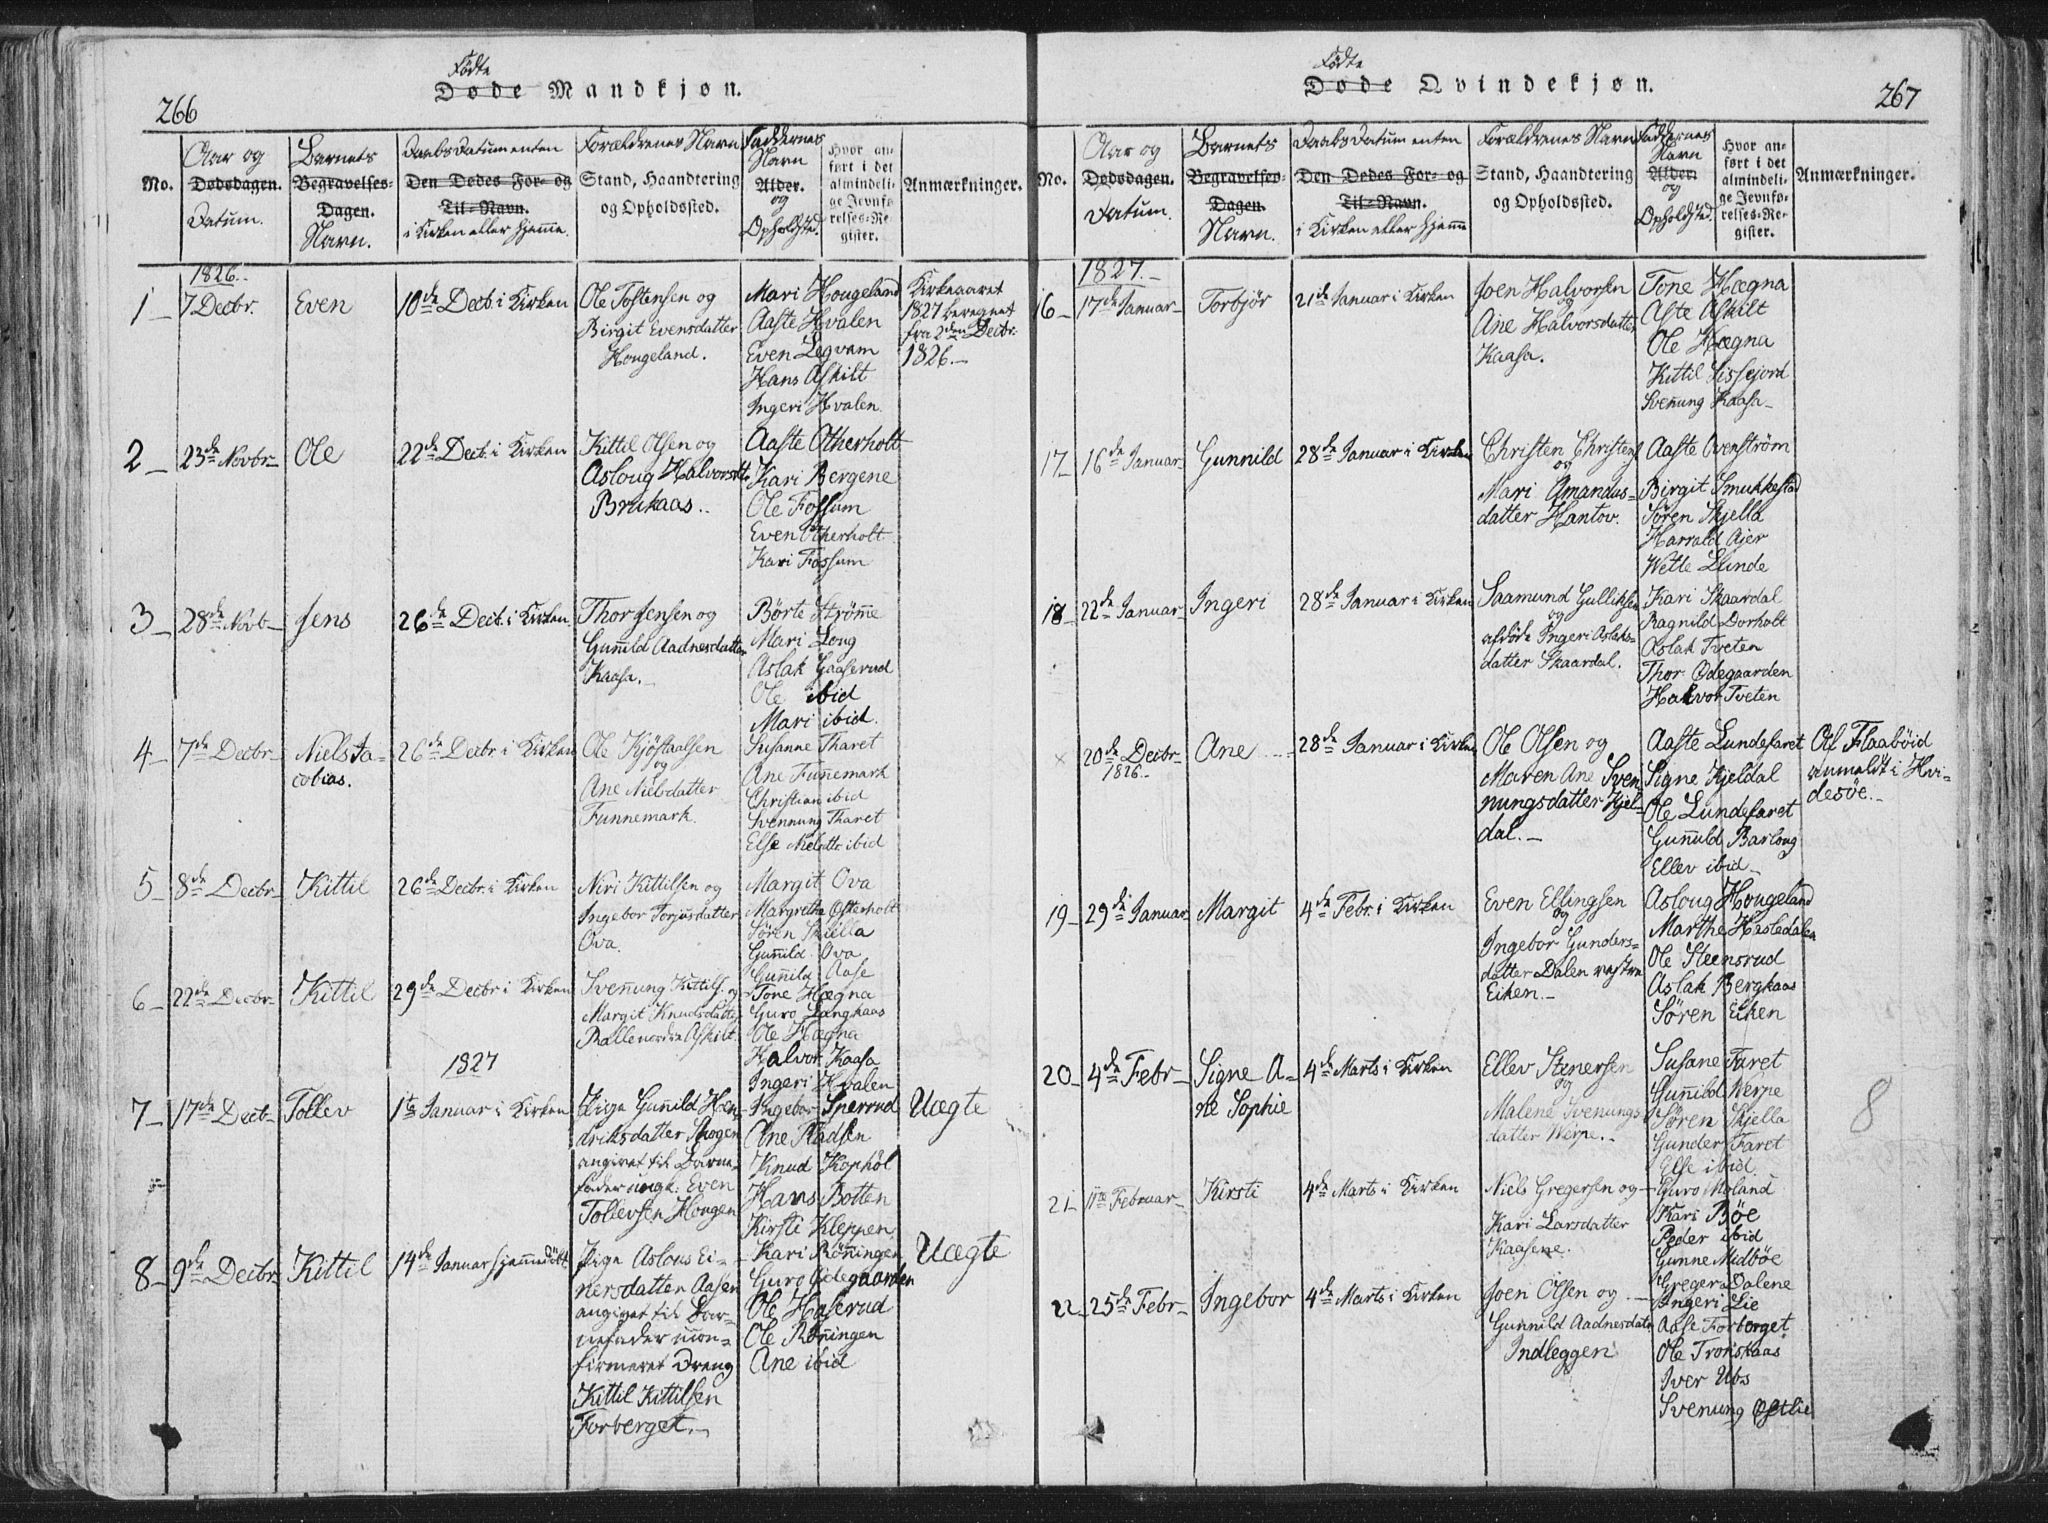 266
Födte
Døde Mandkjøn.
No.
Aar og
Dødsdagen.
Datum.
Barnets
Begravelses-
Dagen.
Navn.
Daabs Datum enten
Den Dødes For- og
Til-Navn.
i Kirken eller hjemme.
Forældrenes Navn
Stand, Haandtering
og Opholdssted.
Faddernes
Navn
Alder.
og
Opholdstd.
Hvor an-
ført i det
almindeli-
ge Jevnfø-
relses-Re-
gister.
Anmærkninger.
1826.
1 7 Decbr. Even 10de Decb. i Kirken
Ole Tostensen og
Birgit Evensdatter
Hougeland.
Mari Hougeland
Aaste Hvalen
Even Legvam
Hans Askilt
Ingeri Hvalen
Kirkeaaret
1827 beregnet
fra 2den Decbr.
1826.
2 23de Novbr Ole 22de Decb. i Kirken
Kittil Olsen og
Asloug Halvorsdtr
Brukaas.
Aaste Otherholt
Kari Bergene
Ole Fossum
Even Otherholt
Kari Fossum
3 28de Novb Jens 26de Decb. i Kirken
Thor Jensen og
Gunnild Aadnesdatter
Kaasa.
Børte Strømme
Mari Loug
Aslak Gaaserud
Ole ibid
Mari ibid.
4 7de Decbr Niels Ja-
cobias.
26de Decbr i Kirken
Ole Kjöstaalsen
og
Ane Nielsdatter
Funnemark.
Susanne Tharet
Ane Funnemark
Christian ibid
Svennung Tharet
Else Nielsdtr ibid
5 8de Decbr Kittil 26de Decbr. i Kirken
Niri Kittilsen og
Ingebor Torjusdatter
Ova.
Margit Ova
Margrethe Østerholt
Søren Skiella
Gunnild Ova
Gunnild Aase
6 22de Decbr Kittil 29de Decbr i Kirken
Svennung Kittils. og
Margit Knudsdatter
Balle nordre Askilt
Tone Hægna
Guro Langkaas
Ole Hægna
Halvor Kaasa
Ingeri Hvalen
1827
7 17de Decb Tollev 1te Januar i Kirken
Pige Gunnild Hen-
driksdatter Skogen
angivet til Barne-
fader ungk. Even
Tollevsen Hougen
Ingebor Sperrud
Ane Radsen
Knud Kophøl
Hans Botten
Kirsti Kleppen
Uægte
8 9de Decbr Kittil 14de Januar hjemmedöbt
Pige Aslous Ei-
nersdatter Aasen
angivet til Bar-
nefader ucon-
firmeret Dreng
Kittil Kittilsen
Forberget.
Kari Rönningen
Guro Ødegaarden
Ole Haserud
Ole Rönningen
Ane ibid
Uægte
267
Födte
Døde Qvindekjøn.
No.
Aar og
Dødsdagen.
Datum.
Barnets
Begravelses-
Dagen.
Navn.
Daabs Datum enten
Den Dødes For- og
Til-Navn.
i Kirken eller hjemme
Forældrenes Navn
Stand, Haandtering
og Opholdssted.
Faddernes
Navn
Alder.
og
Opholdstd.
Hvor an-
ført i det
almindeli-
ge Jevnfø-
relses-Re-
gister.
Anmærkninger.
1827.
16 17de Januar Torbjör 21de Januar i Kirken
Joen Halvorsen
og
Ane Halvorsdatter
Kaasa.
Tone Hægna
Aste Askilt
Ole Hægna
Kittil Sissejord
Svenung Kaasa
17 16de Januar Gunnild 28de Januar i Kirken
Christen Christens
og
Mari Amandus-
datter Hantov.
Aaste Ovenstrøm
Birgit Smukkestad
Søren Skjella
Harrald Ajer
Wetle Lunde
18 22de Januar Ingeri 28de Januar i Kirken
Saamund Gulliksen
og
afdöde Ingeri Aslaks-
datter Skaardal.
Kari Skaardal
Ragnild Dorholt
Aslak Tveten
Thor Ødegaarden
Halvor Tveten
20de Decbr
1826.
Ane 28de Januar i Kirken
Ole Olsen og
Maren Ane Sven-
nungsdatter Kjel-
dal.
Aaste Lundefaret
Signe Kjeldal
Ole Lundefaret
Gunnuld Barloug
Ellev ibid
Af Flaaböid
anmeldt i Hvi-
desöe.
19 29de Januar Margit 4de Febr. i Kirken
Even Ellingsen
og
Ingebor Gunders-
datter Dalen vestre
Eiken.
Asloug Hougeland
Marthe Hesledalen
Ole Steensrud
Aslak Bergkaas
Søren Eiken
20 4de Febr Signe A-
ne Sophie
4de Marts i Kirken
Ellev Stenersen
og
Malene Svenungs-
datter Werpe.
Susane Faret
Gunnild Werpe
Søren Skjella
Gunder Faret
Else ibid
8
21 11te Februar Kirsti 4de Marts i Kirken
Niels Gregersen og
Kari Larsdatter
Kaasene.
Guro Moland
Kari Bøe
Peder ibid
Gunne Midbøe
Greger Dalene
22 25de Febr Ingebor 4de Marts i Kirken
Joen Olsen og
Gunnild Aadnesdatr
Indleggen
Ingeri Lie
Aase Forberget
Ole Tronskaas
Iver Ubs
Svenung Østlie